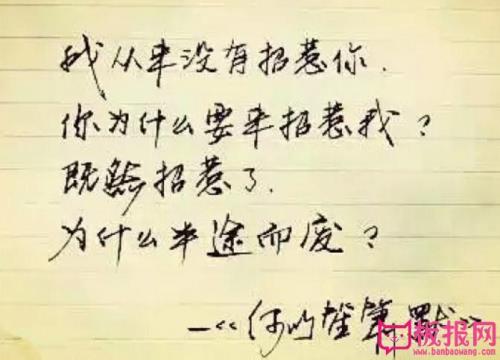 我从来没有招惹你.
你为什么要来招惹我?
既然招惹了.
为什么半途而废?
—<<何以笙箫默>>
板报网
www.banbaowang.com